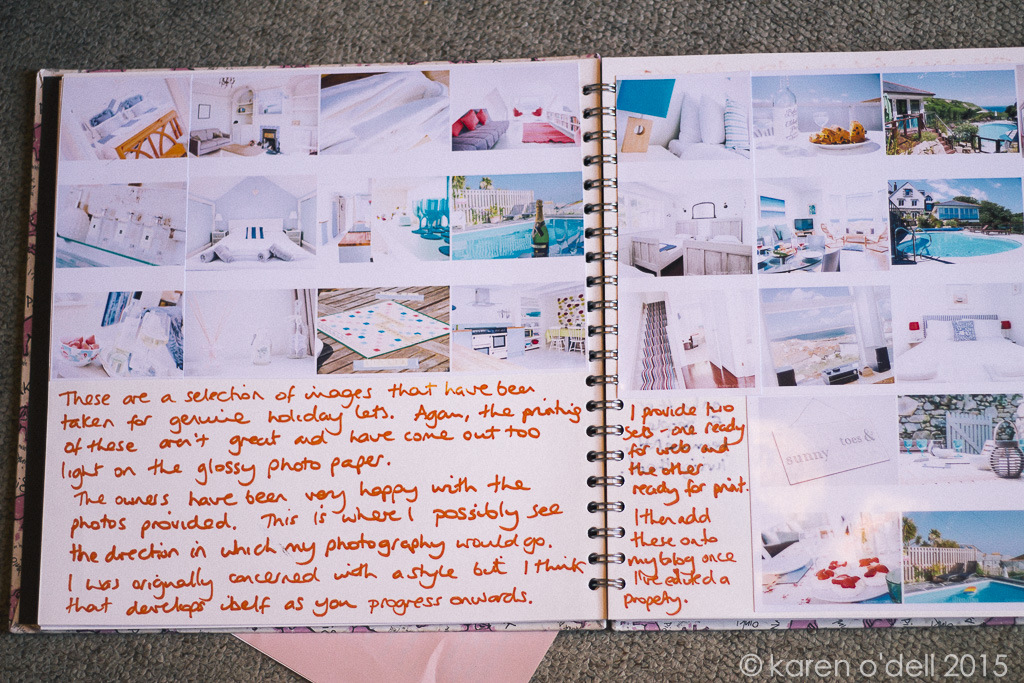 These are a selection of images that have been
taken for genuine holiday lets. Again, the printing
of these aren't great and have come out too
light on the glossy photo paper.
The owners have been very happy with the
photos provided. This is where I possibly see
the direction in which my photography would go.
I was originally concerned with a style but I think
that develops itself as you progress onwards.
I provide two
sets - one ready
for web and
the other
ready for print.
I then add
these onto
my blog once
I've edited a
property.
sunny toes &
© karen o'dell 2015